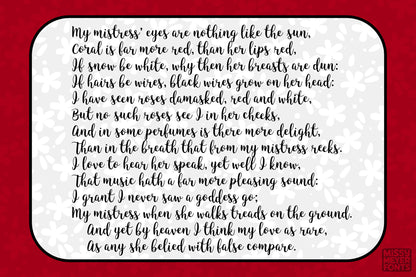 My mistress' eyes are nothing like the sun,
Coral is far more red, than her lips red,
If snow be white, why then her breasts are dun:
If hairs be wires, black wires grow on her head:
I have seen roses damasked, red and white,
But no such roses see I in her cheeks,
And in some perfumes is there more delight,
Than in the breath that from my mistress reeks.
I love to hear her speak, yet well I know,
That music hath a far more pleasing sound:
I grant I never saw a goddess go;
My mistress when she walks treads on the ground.
And yet by heaven I think my love as rare,
As any she belied with false compare.
MISSY
MEYER
FONTS